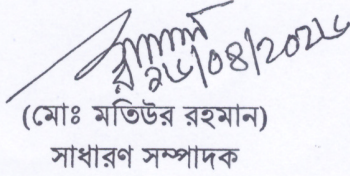 ২৬/০৪/২০২৬
(মোঃ মতিউর রহমান)
সাধারণ সম্পাদক